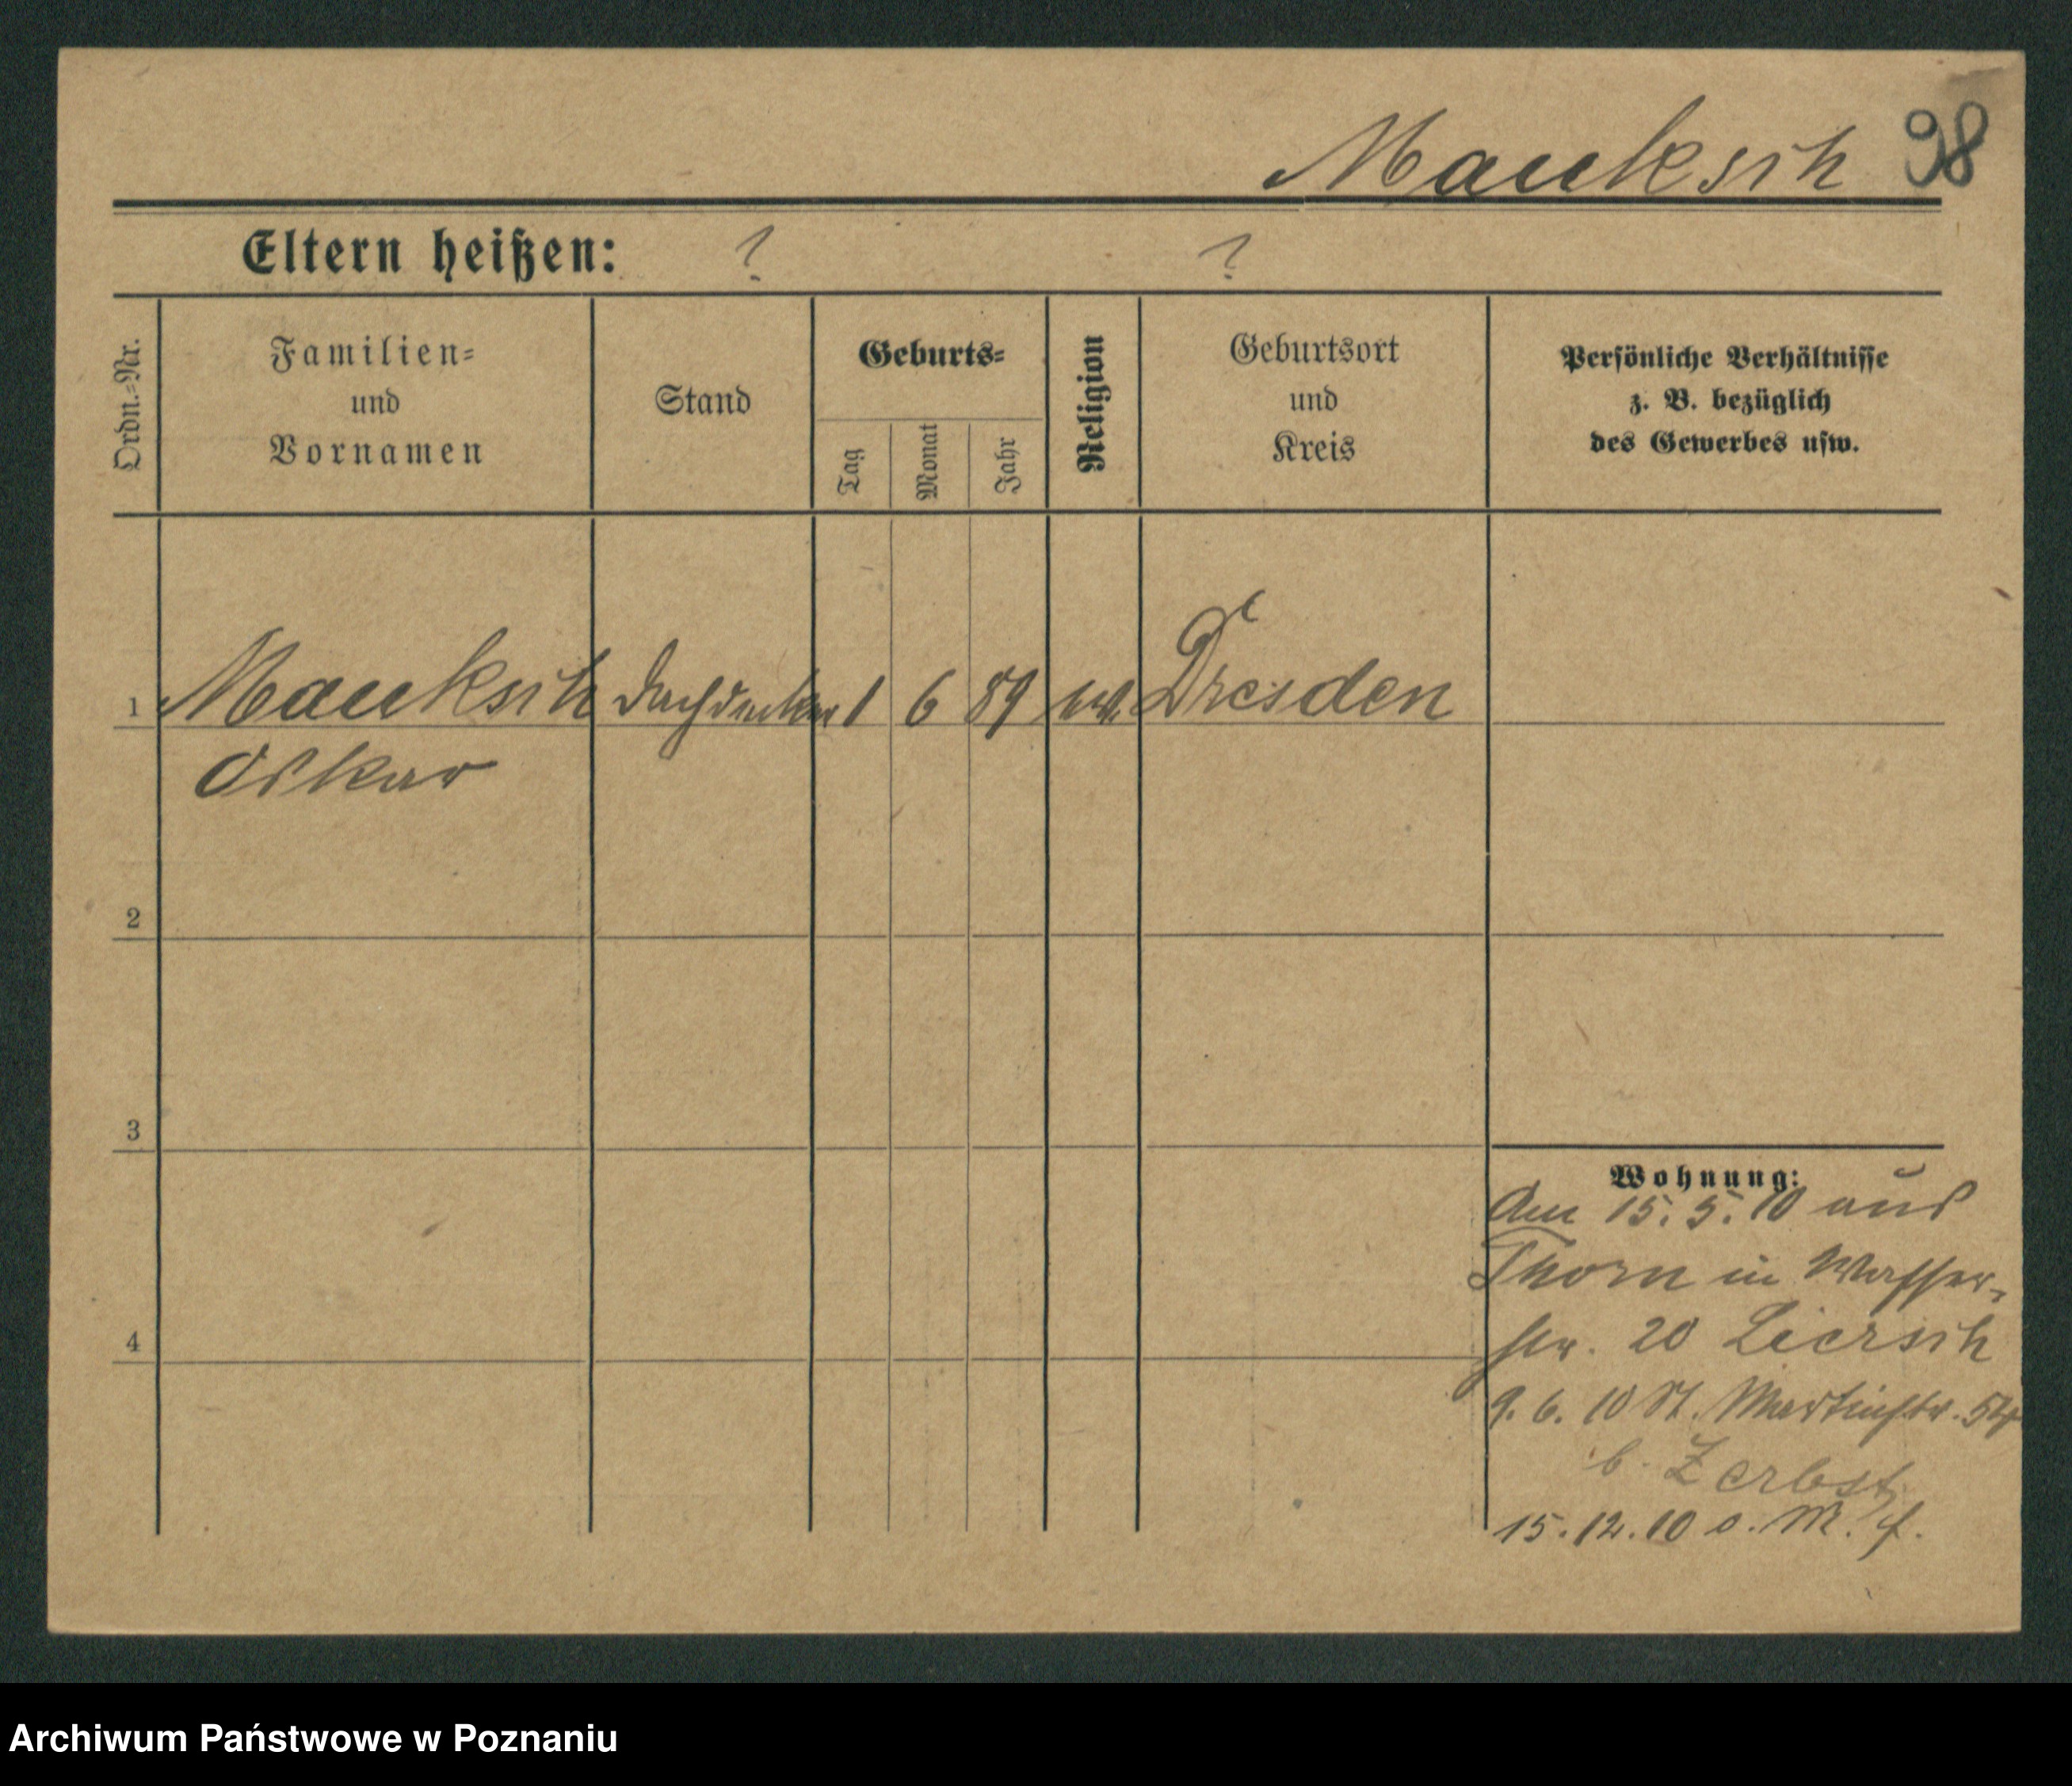 Mauksch 98
Eltern heißen: ? ?
Ordn.-Nr.
Familien-
und
Vornamen
Stand
Geburts-
Tag
Monat
Jahr
Religion
Geburtsort
und
Kreis
Persönliche Verhältnisse
z. B. bezüglich
des Gewerbes usw.
1 Mauksch Dachdecker 1 6 89 Dresden
Oskar
2
3
4
Wohnung:
Am 15. 5. 10 aus
Thorn in Wasser-
str. 20 Liersch
9. 6. 10 St. Martinstr.
b. Zerbst
15. 12. 10 o. M. f.
Archiwum Państwowe w Poznaniu